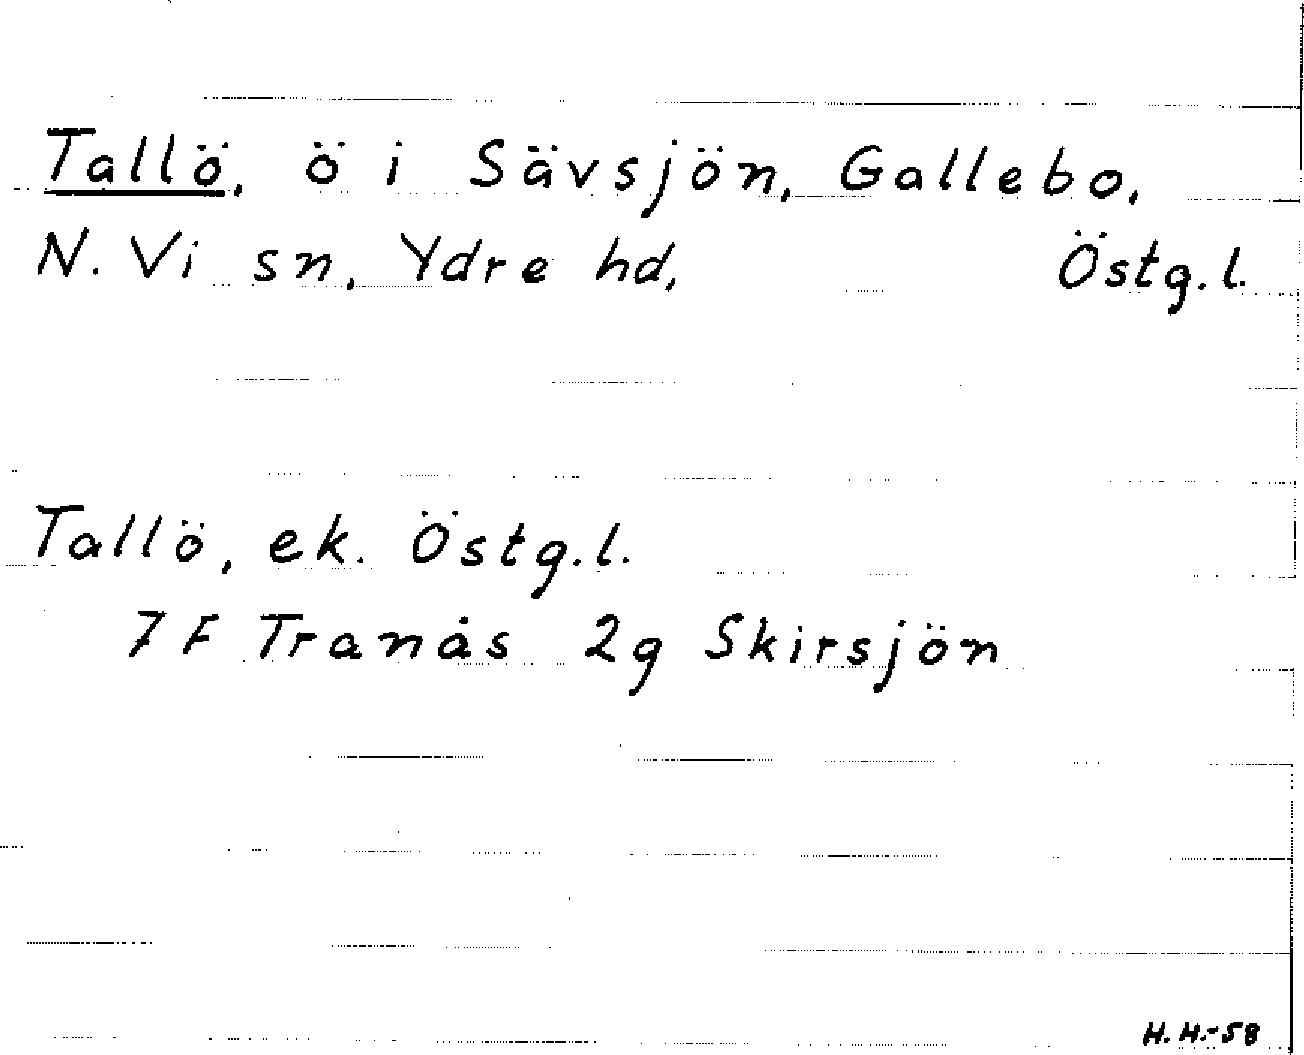 Tallö, ö i Sävsjön, Gallebo,
N. Vi sn, Ydre hd, Östg.l.
Tallö, ek. Östg.l.
7 F Tranås 2g Skirsjön
H.H.-58